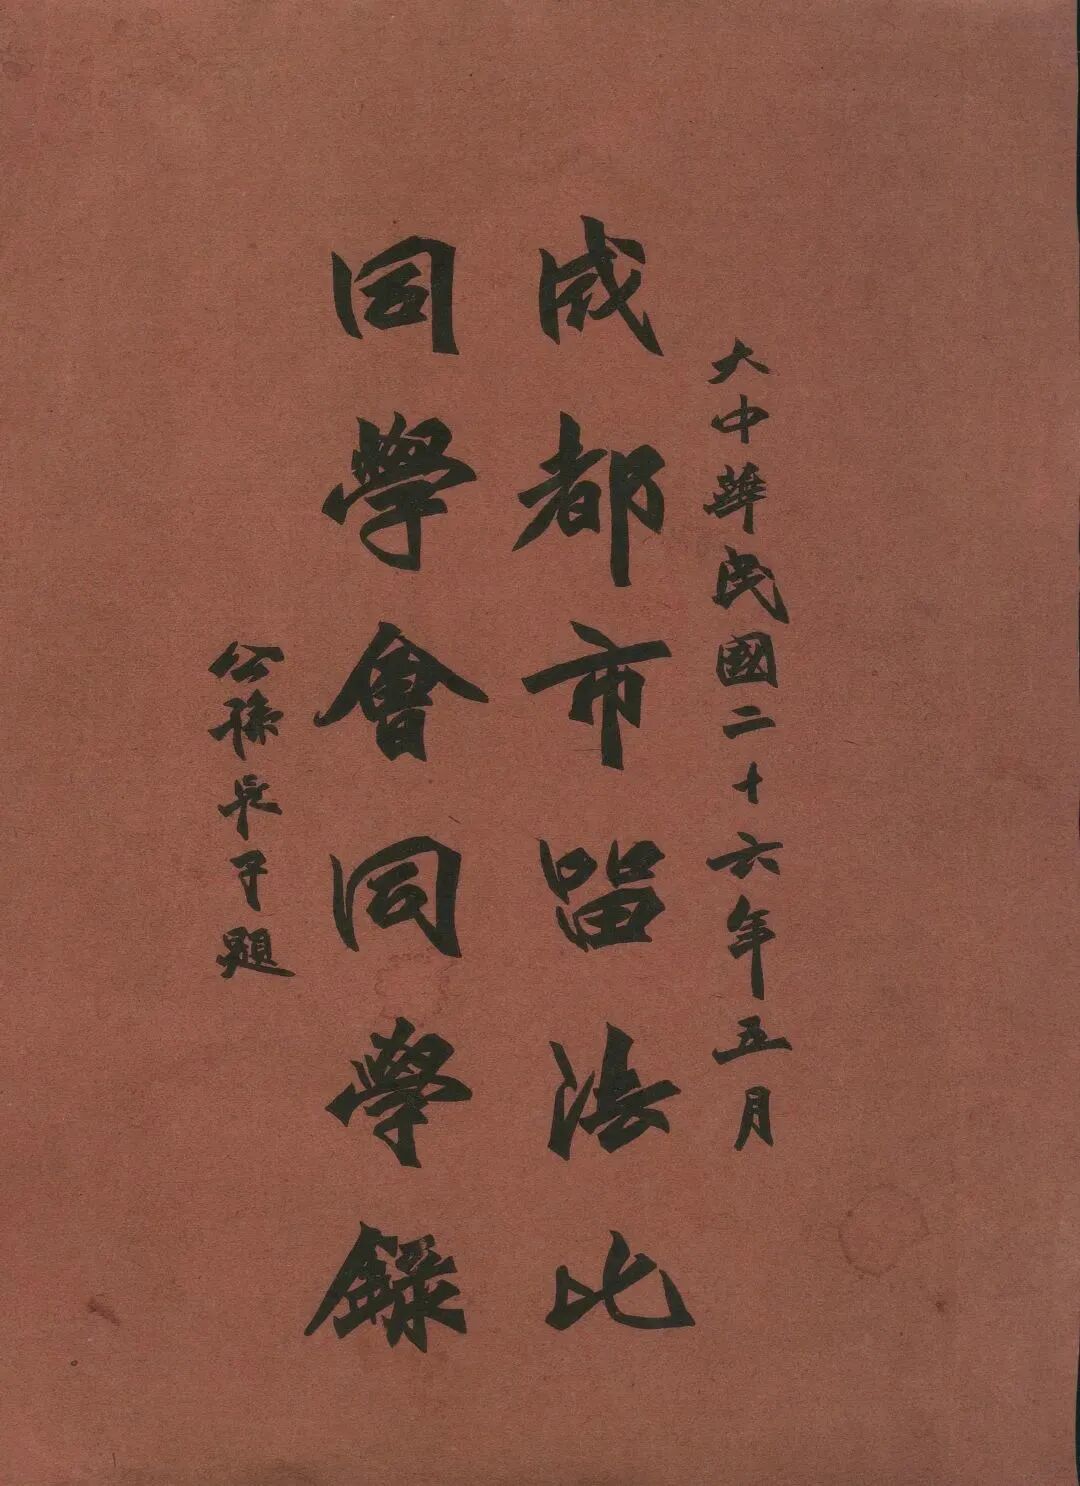 大中華民國二十六年五月
成都市畱法比
同學會同學錄
公孫長子題